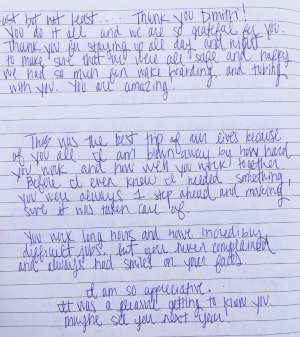 last but not least..... Thank you Dmitri!
You do it all and we are so grateful for you.
Thank you for staying up all day and night
to make sure that we were all safe and happy
we had so much fun wake boarding and tubing
with you. You are amazing!
This was the best trip of our lives because
of you all. I am blown away by how hard
you work and how well you work together.
Before I even knew I needed something
you were always 1 step ahead and making
sure it was taken care of.
You work long hours and have incredibly
difficult jobs, but you never complained
and always had smiles on your faces
I am so appreciative..
It was a pleasure getting to know you.
maybe see you next year!